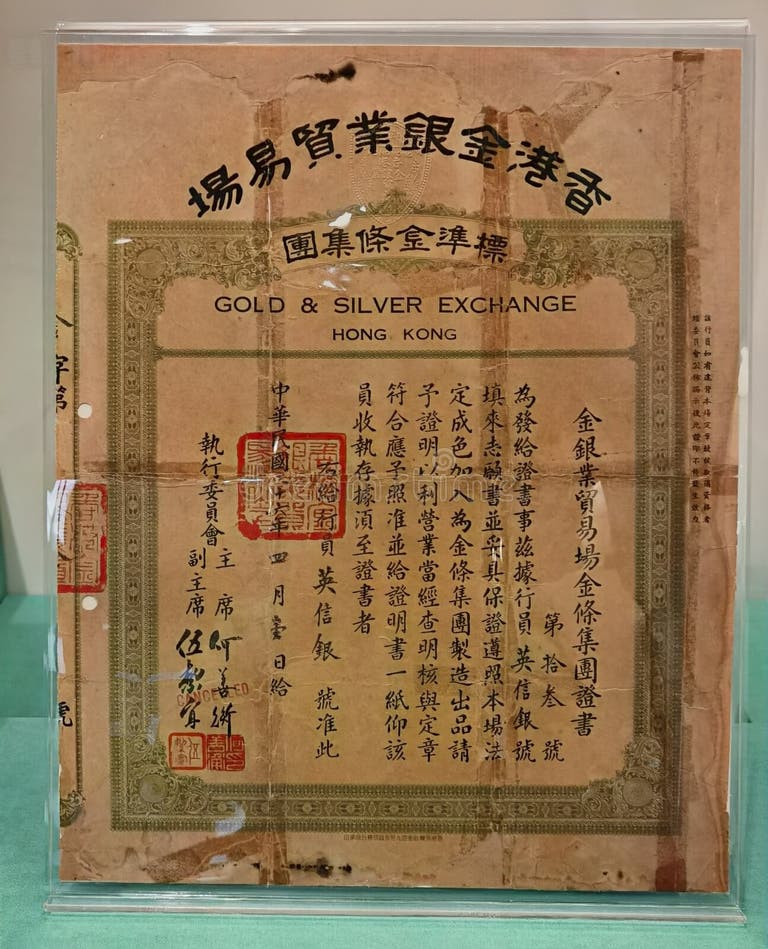 香港金銀業貿易場
標準金條集團
GOLD & SILVER EXCHANGE
HONG KONG
金銀業貿易場金條集團證書
第拾叁號
為發給證書事茲據行員英信銀號
填來志願書並妥具保證遵照本場法
定成色加入為金條集團製造出品請
予證明以利營業當經查明核與定章
符合應予照准並給證明書一紙仰該
員收執存據須至證書者
右給行員英信銀號准此
中華民國 年四月壹日給
執行委員會主席何善衡
副主席伍
CANCELLED
字第
號
dreamstime